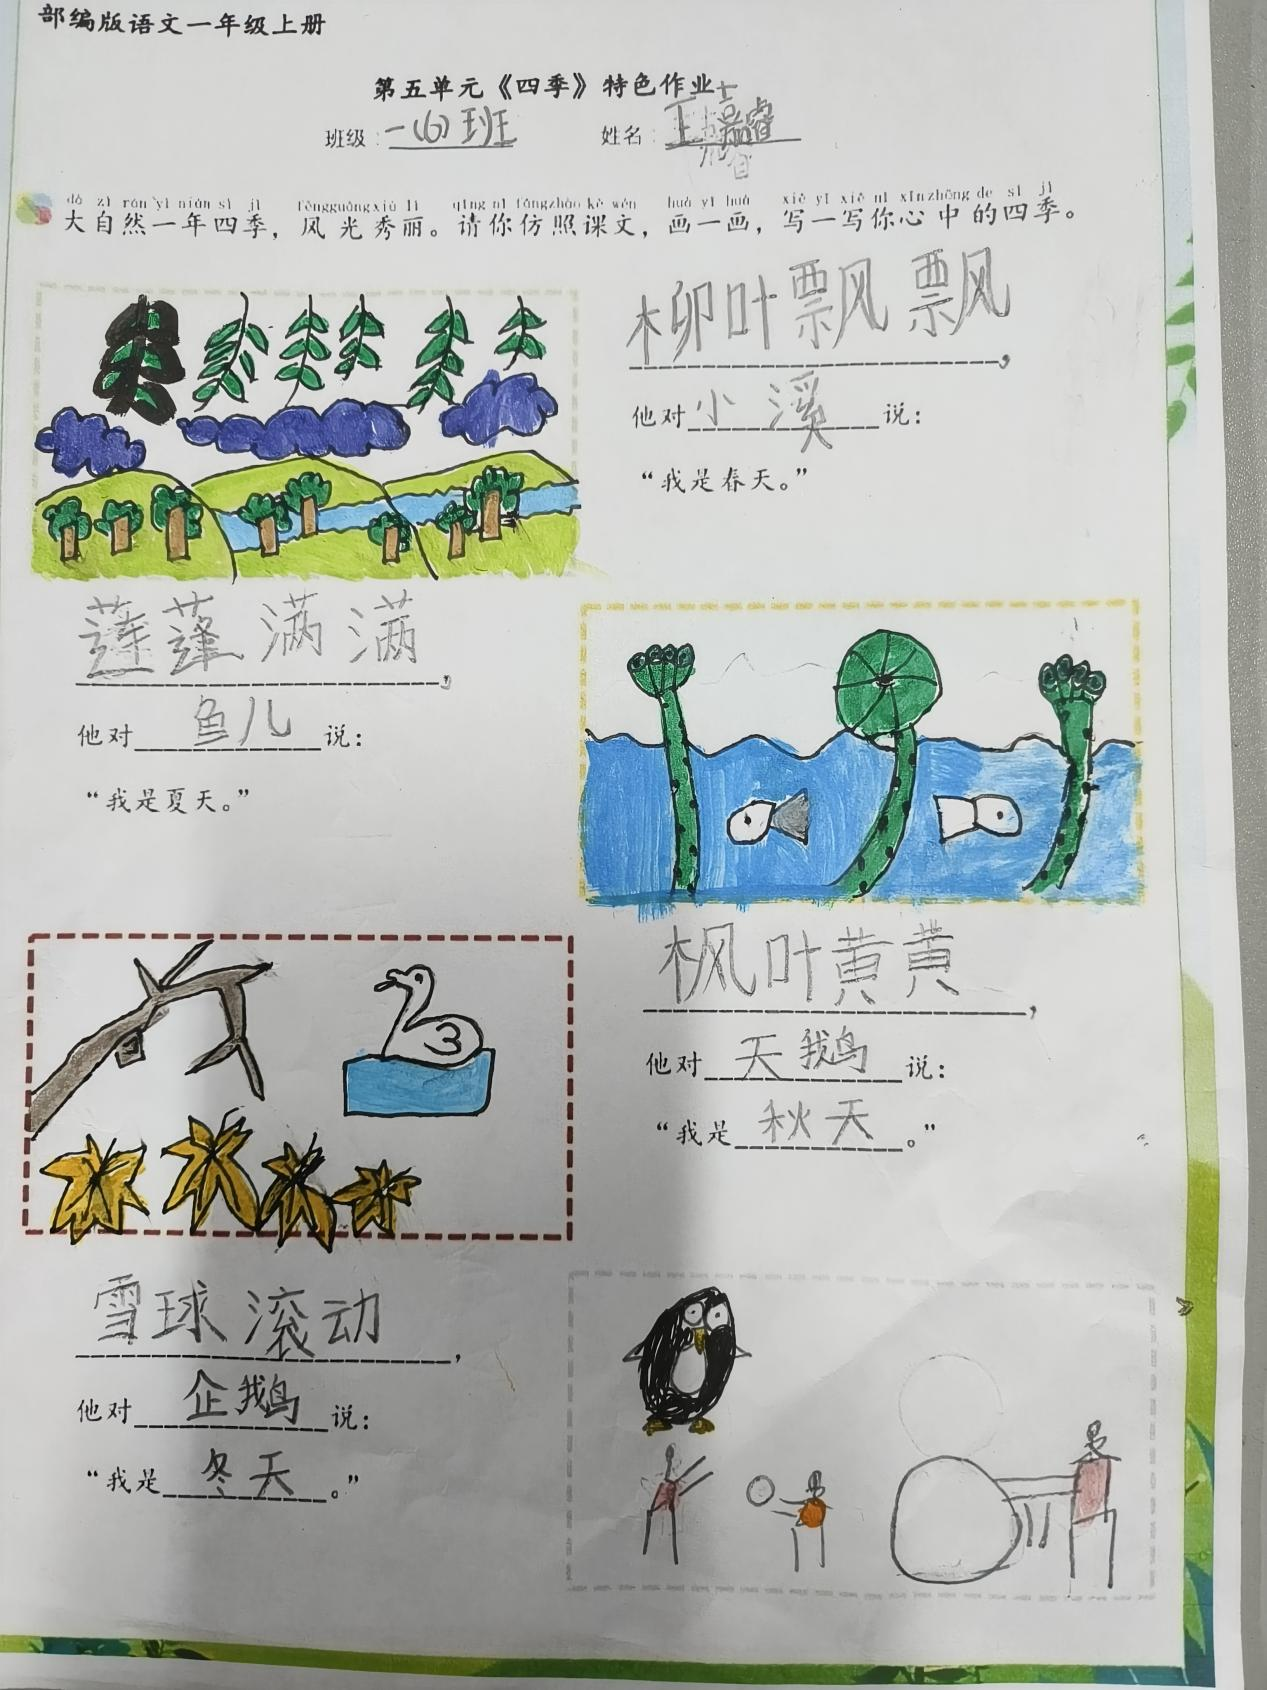 部编版语文一年级上册
第五单元《四季》特色作业
班级：一(6)班 姓名：王嘉睿
dà zì rán yì nián sì jì fēngguāngxiù lì qǐng nǐ fǎngzhào kè wén huà yí huà xiě yī xiě nǐ xīnzhōng de sì jì
大自然一年四季，风光秀丽。请你仿照课文，画一画，写一写你心中的四季。
柳叶飘飘，
他对小溪说：
“我是春天。”
莲蓬满满，
他对鱼儿说：
“我是夏天。”
枫叶黄黄，
他对天鹅说：
“我是秋天。”
雪球滚动，
他对企鹅说：
“我是冬天。”